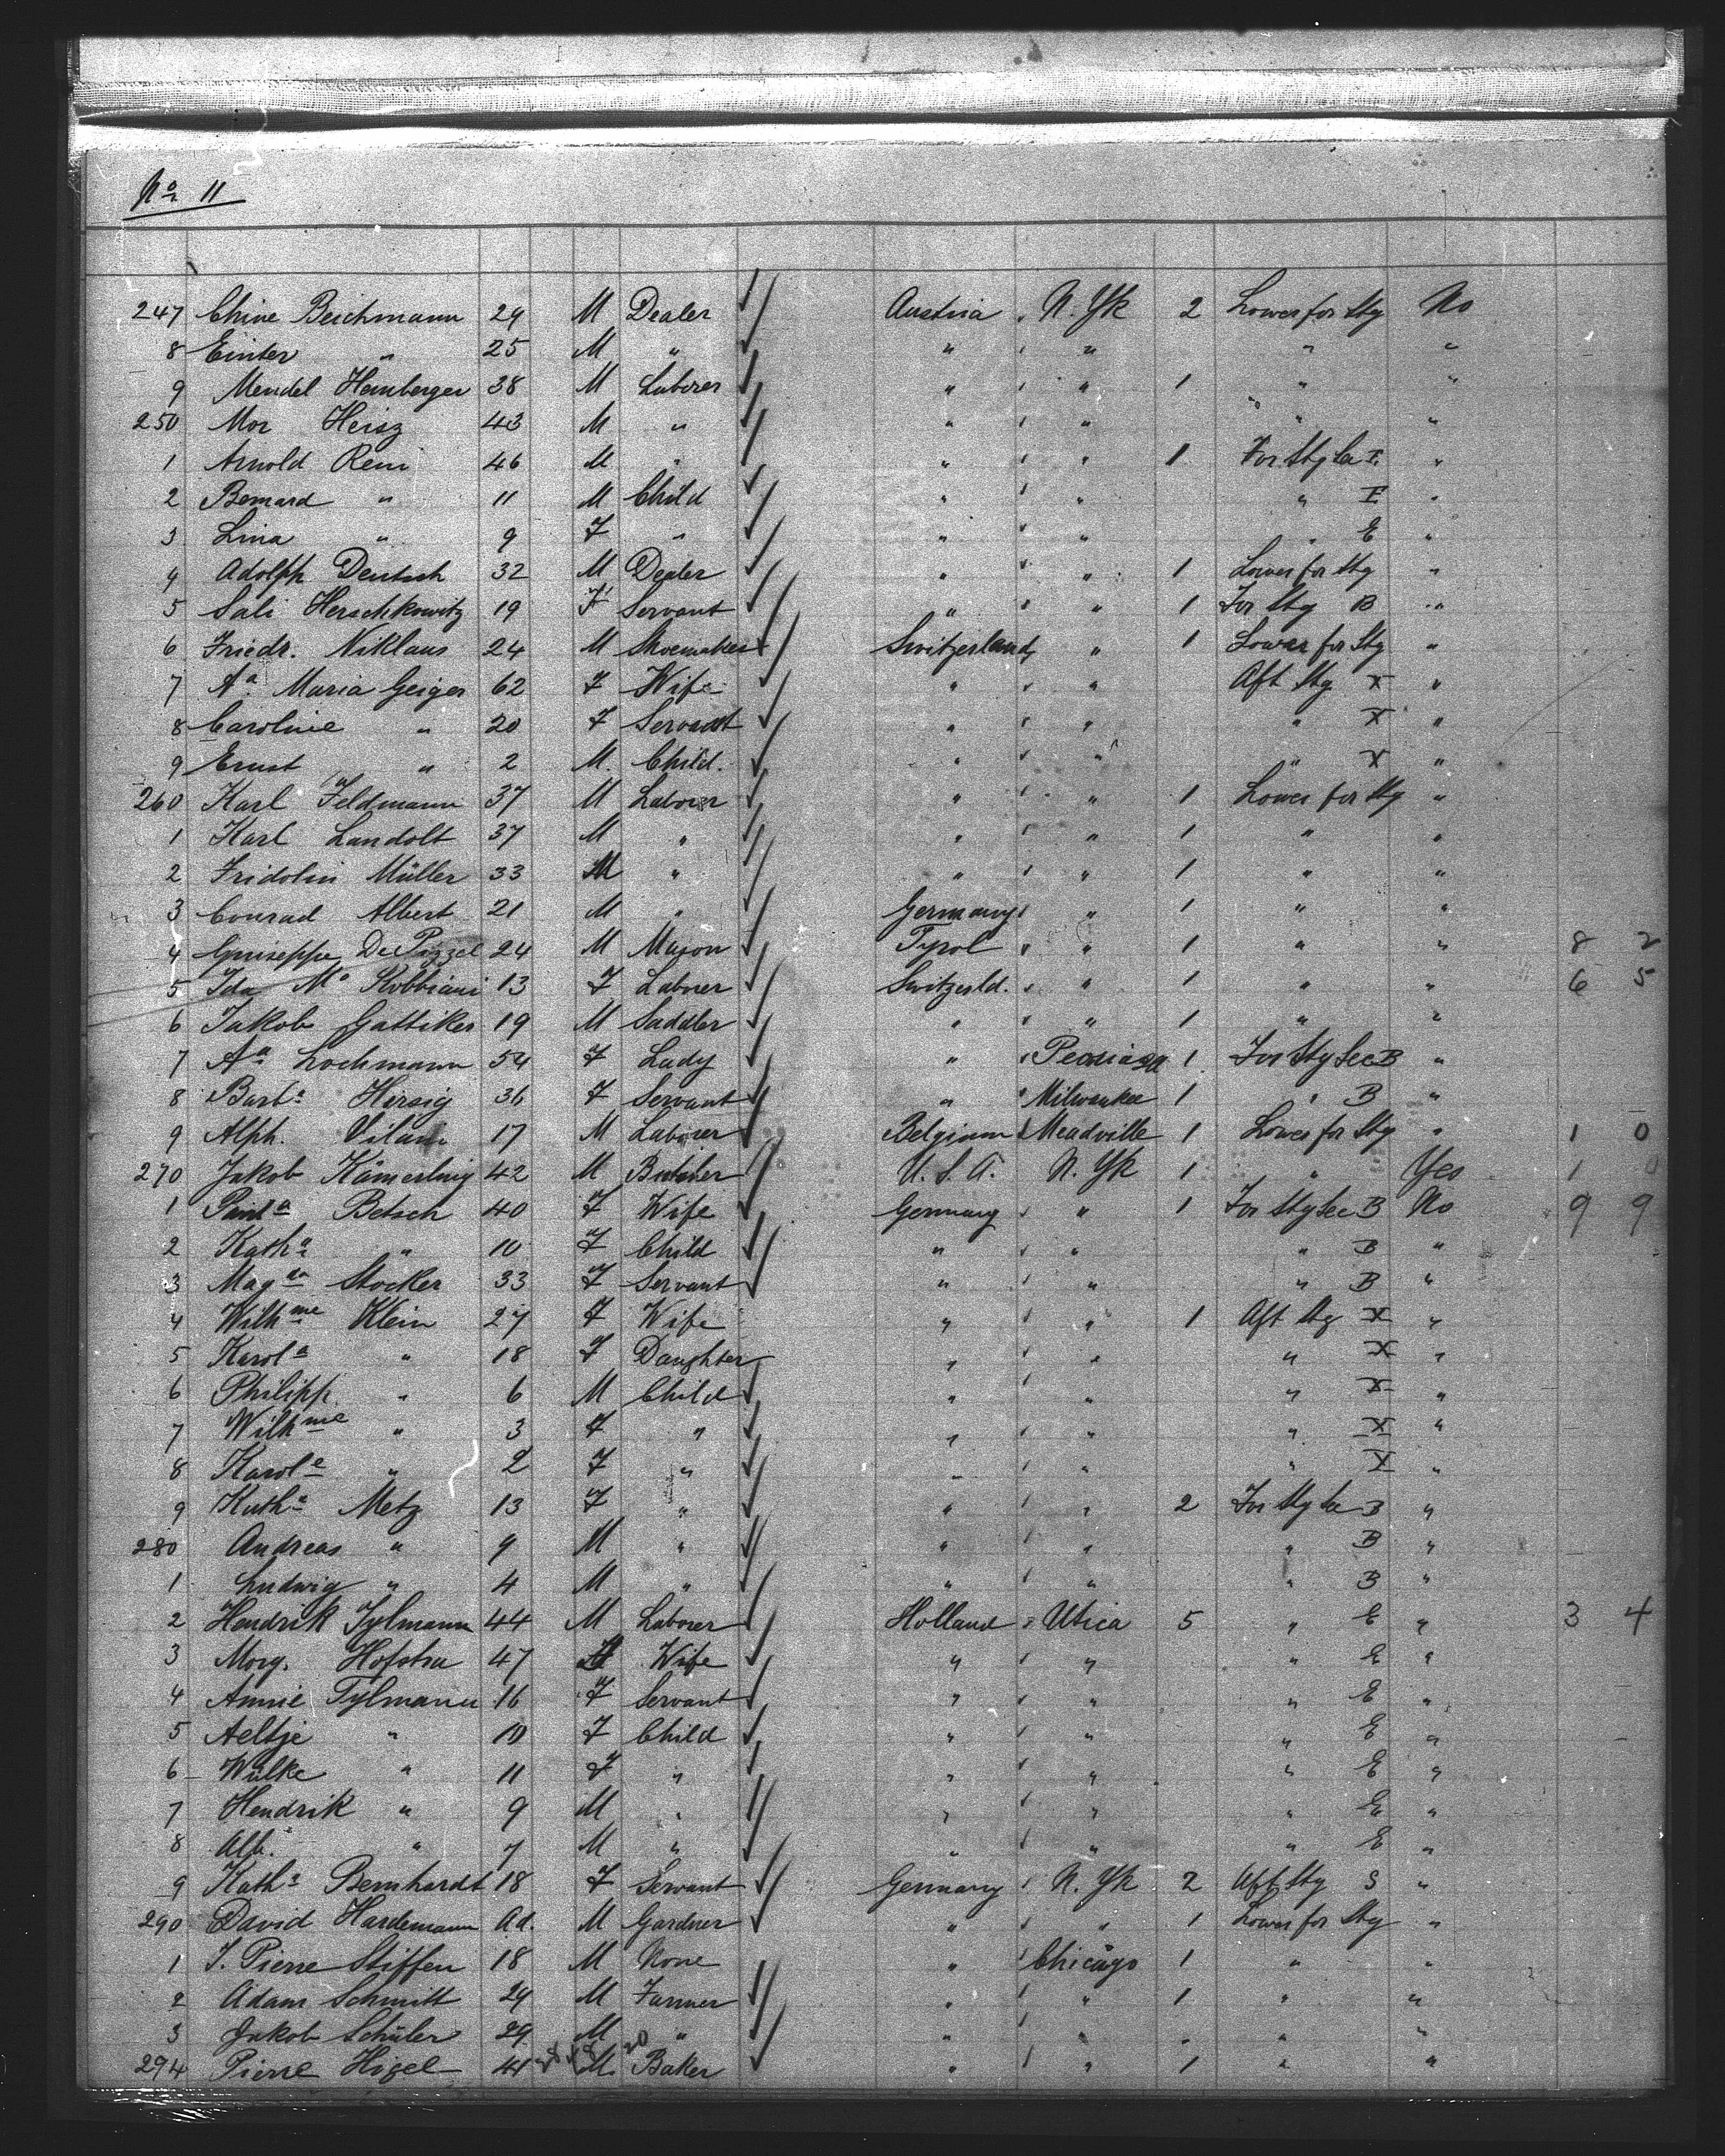 No 11
247 Chine Beichmann 29 M Dealer Austria N. Yk 2 Lower for Stg No
8 Einter " 25 M " " " " "
9 Mendel Hamberger 38 M Laborer " " 1 " "
250 Mor Heisz 43 M " " " " "
1 Arnold Reni 46 M " " " 1 For Stg Se E "
2 Bernard " 11 M Child " " " E "
3 Lina " 9 F " " " " E "
4 Adolph Deutsch 32 M Dealer " " 1 Lower for Stg "
5 Sali Herschkowitz 19 F Servant " " 1 For Stg B "
6 Friedr. Niklaus 24 M Shoemaker Switzerland " 1 Lower for Stg "
7 Aa Maria Geiger 62 F Wife " " Aft Stg X "
8 Caroline " 20 F Servant " " " X "
9 Ernst " 2 M. Child. " " " X "
260 Karl Feldmann 37 M Laborer " " 1 Lower for Stg "
1 Karl Landolt 37 M " " " 1 " "
2 Fridolin Müller 33 M " " " 1 " "
3 Conrad Albert 21 M " Germany " 1 " "
4 Guiseppe De Pizzel 24 M Mason Tyrol " 1 " " 8 2
5 Ida Ma Robbiani 13 F Laborer Switzerld. " 1 " " 6 5
6 Jakob Gattiker 19 M Saddler " " 1 " "
7 Aa Lochmann 54 F Lady " Peoria 1 For Stg Sec B "
8 Barba Hirsig 36 F Servant " Milwaukee 1 " B "
9 Alph. 17 M Laborer Belgium Meadville 1 Lower for Stg " 1 0
270 Jakob Kämerling 42 M Butcher U. S. A. N. Yk 1 " Yes 1 0
1 Betsch 40 F Wife Germany " 1 For Stg Sec B No 9 9
2 Katha " 10 F Child " " " B "
3 Magna Stocker 33 F Servant " " " B "
4 Wilhme Klein 27 F Wife " " 1 Aft Stg X "
5 Karola " 18 F Daughter " " " X "
6 Philipp " 6 M Child " " " X "
7 Wilhme " 3 F " " " " X "
8 Karole " 2 F " " " " X "
9 Katha Metz 13 F " " " 2 For Stg Se B "
280 Andreas " 9 M " " " " B "
1 Ludwig " 4 M " " " " B "
2 Hendrik Tylmann 44 M Laborer Holland Utica 5 " E " 3 4
3 Morg. Hofstra 47 F Wife " " " E "
4 Annie Tylmann 16 F Servant " " " E "
5 Aeltje " 10 F Child " " " E "
6 Wülke " 11 F " " " " E "
7 Hendrik " 9 M " " " " E "
8 Alb. " 7 M " " " " E "
9 Katha Bernhardt 18 F Servant Germany N. Yk 2 Aft Stg S "
290 David Hardemann Ad. M Gardner " " 1 Lower for Stg "
1 J. Pierre Stiffen 18 M None " Chicago 1 " "
2 Adam Schmitt 29 M Farmer " " 1 " "
3 Jakob Schüler 29 M " " " " " "
294 Pierre Higel 41 M. Baker " " 1 " "